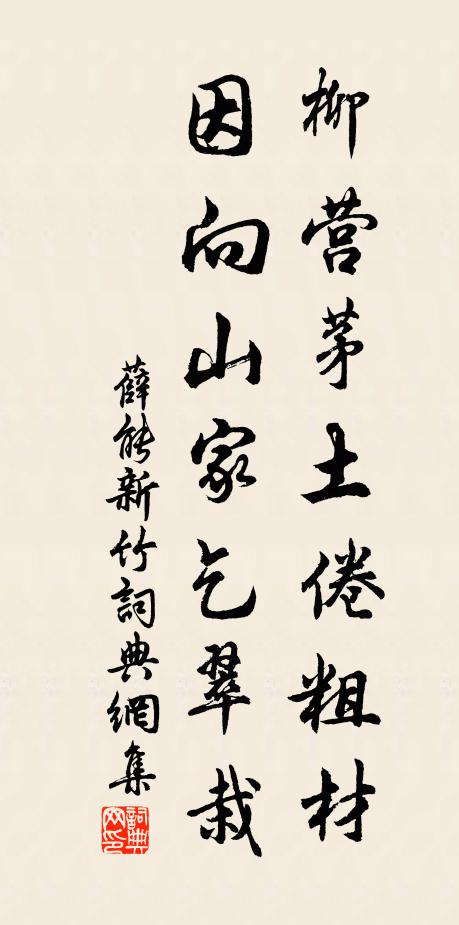 柳营茅土倦粗材
因向山家乞翠栽
薛能新竹詞典網集
詞典网印